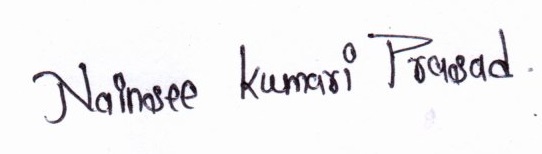 Nainsee Kumari Prasad.